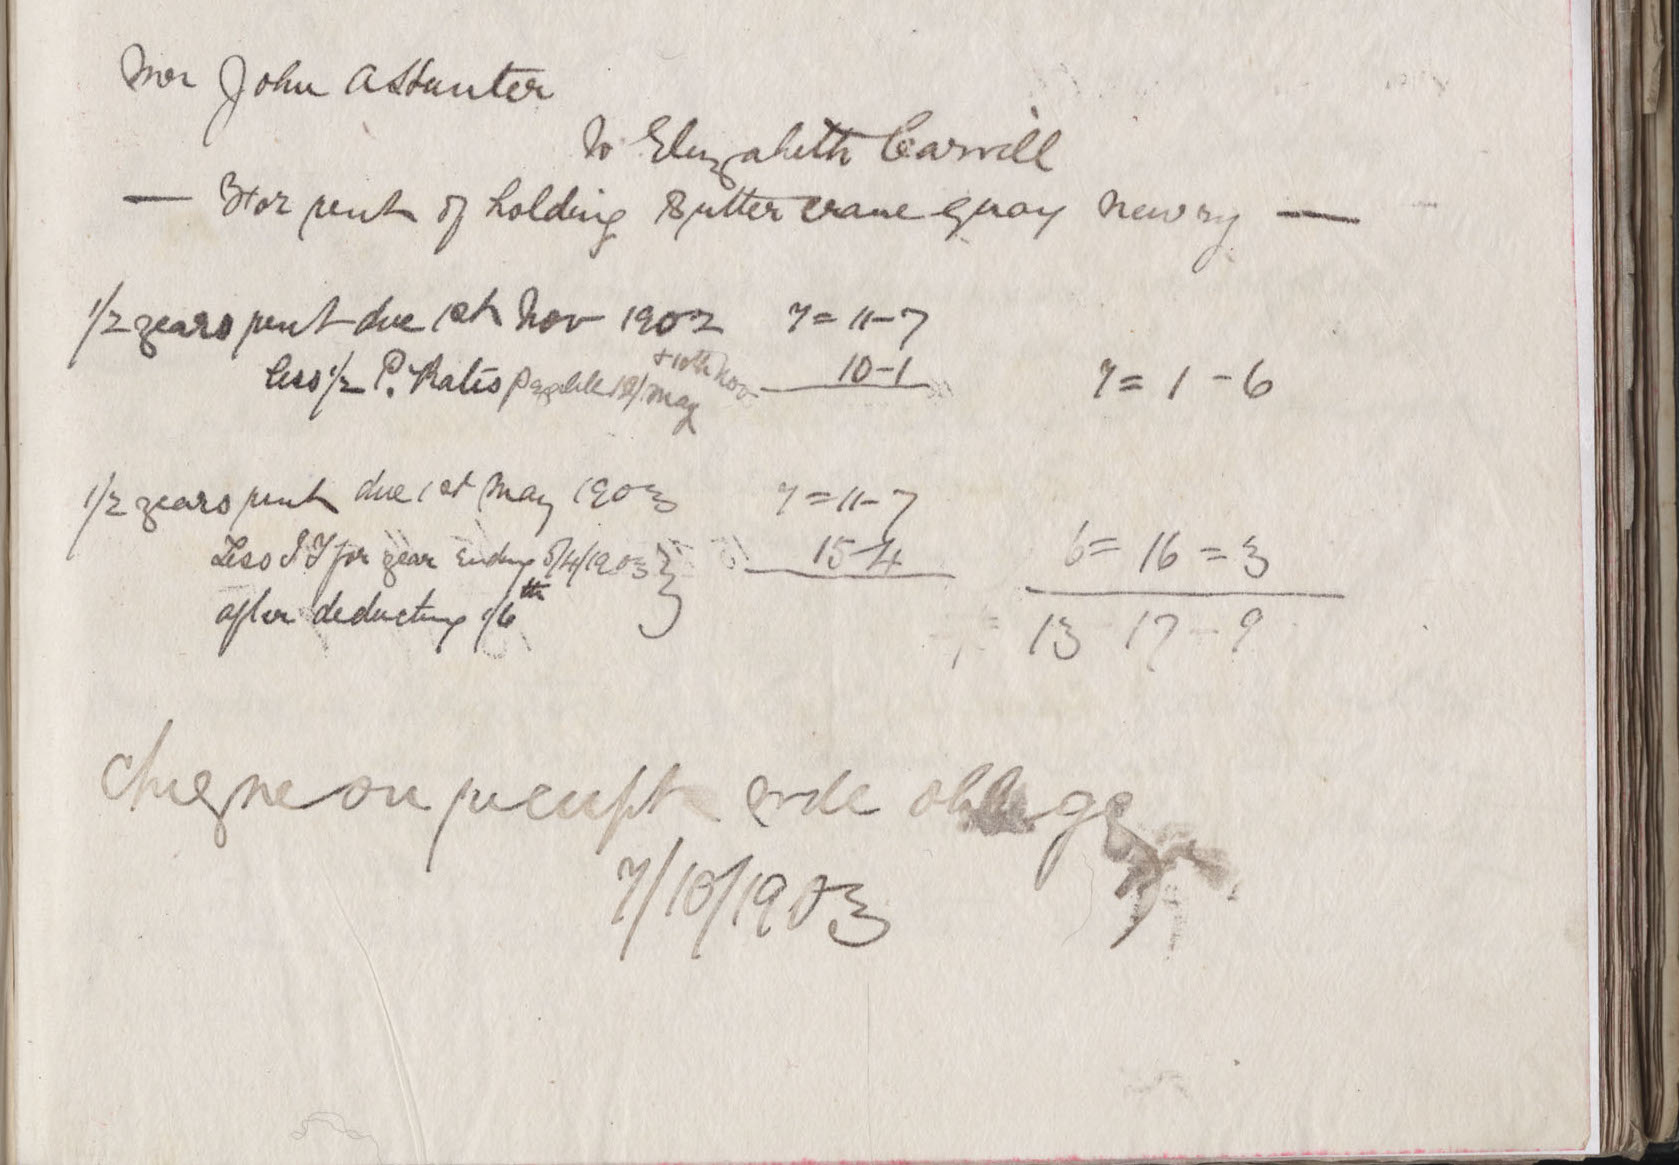 Mr John A Hunter
To Elizabeth Carvill
— For rent of holding Buttercrane Quay Newry —
1/2 years rent due 1st Nov 1902 7 = 11 - 7
+ 10th Nov
Less 1/2 P. Rates payable 12/ May 10 - 1 7 = 1 - 6
1/2 years rent due 1st May 1903 7 = 11 - 7
Less I T for year ending 5/4/1903 } 15 - 4 6 = 16 = 3
after deducting 1/6th 13 17 - 9
Cheque on receipt will oblige
7/10/1903